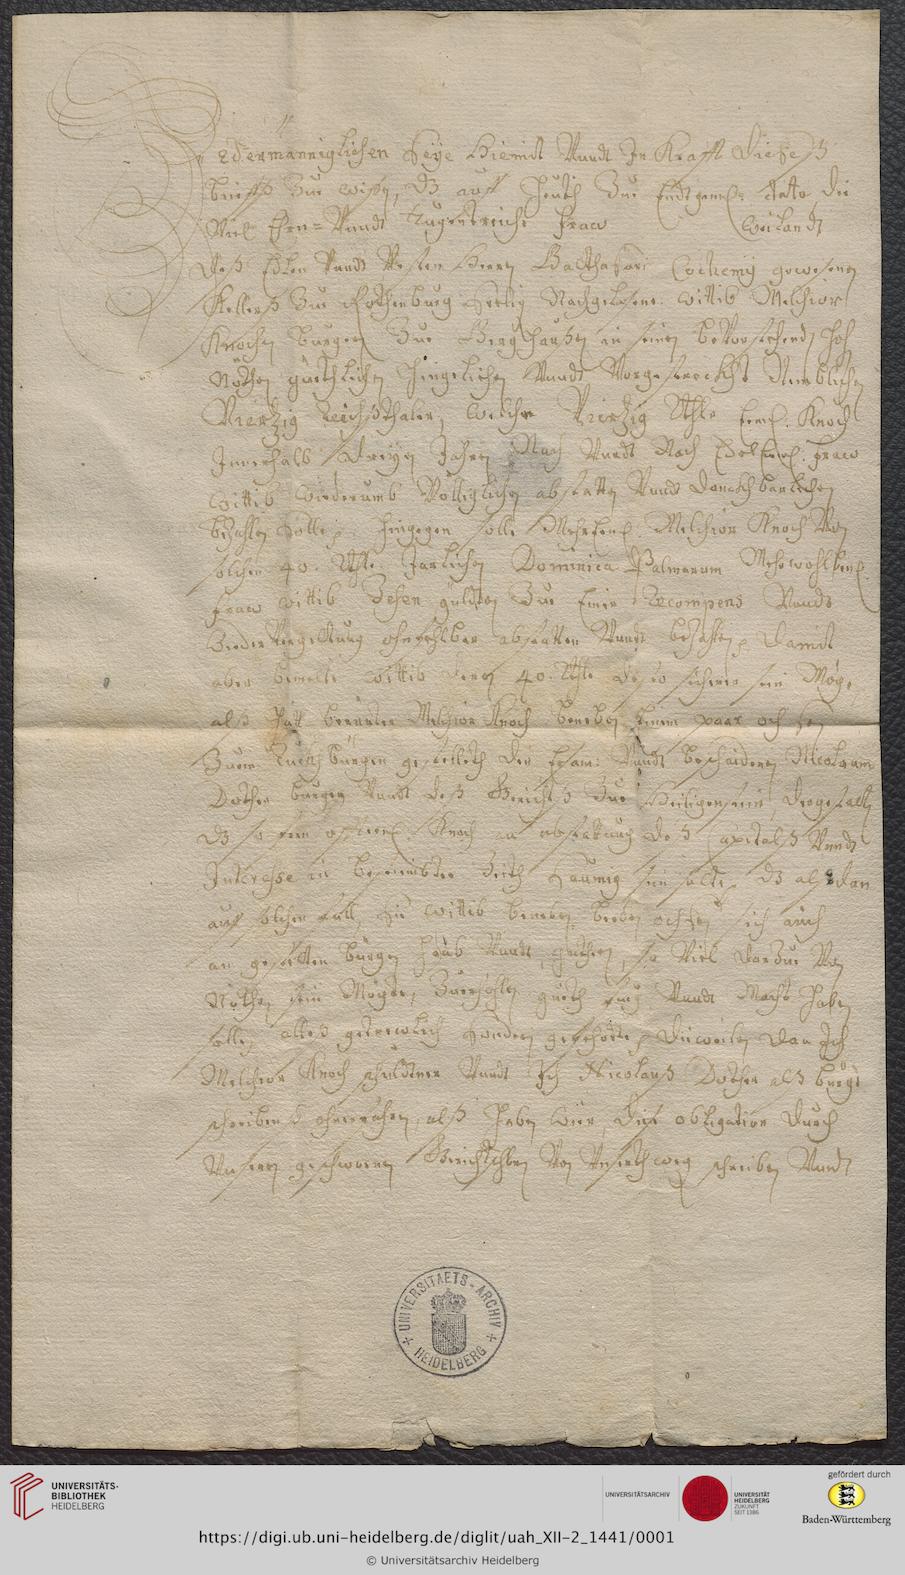 Jedermänniglichen Seye Hiemit Undt In Krafft Dieses
brieffs Zue wißen, dz auff heuth Zue Endtgemelten dato, die
Viel Ehrn= Undt Tugentreiche fraw Weilandt
Deß Edlen Undt Vesten Herrn Balthasari Cochemij gewesenen
Kellers Zue Rothenburg Seelig Nachgelaßene wittib Melchior
Knochen burgern Zue Berghaußen in seinen bevorstehenden hoh
Nöthen güethlichen hingeliehen Undt Vorgestreckht Nemblichen
Vierzig Reichßthaler, welche Vierzig Rthlr Knoch
Innerhalb dreyen Jahren Nach Undt Nach fraw
wittib Wiederumb Völliglichen abstatten Undt danckhbarlichen
bezahlen solle, hingegen solle Melchior Knoch Von
solchen 40. Rthlr Jarlichen Dominica Palmarum
fraw wittib Zehen gulden Zue Einer Recompens Undt
Wieder Vergeltung ohnfehlbar abstatten Undt bezahlen, damit
aber bemelte wittib deren 40. Rthlr desto sicherer sein Möge
alß hatt Melchior Knoch beneben Einem paar ochsen
Zuem bürgen gestelleth den Ersam: Undt bescheidenen Nicolaum
Dother burger Undt deß Gerichts Zue Heiligenstein, dergestalt
dz so fern Knoch an abstattung deß Capitalß Undt
Interesse in bestimbter Zeith Saumig sein solte, dz alßdan
auff solchen fall, die wittib beneben beeden ochsen sich auch
an gesetzten bürgen haab Undt güethern, so Viel darzue Von
Nöthen sein Mögte, Zuerhohlen gueth fueg Undt Macht haben
solle, alles getrewlich Sonder gefehrde, dieweilen dan Ich
Melchior Knoch schuldtner Undt Ich Nicolauß Dother alß bürg
schreibens ohnerfahren, alß haben wür diese obligation durch
Unsern geschworenen Gerichtschbr Von Unsertweg schreiben Undt
UNIVERSITAETS-ARCHIV
HEIDELBERG
UNIVERSITÄTS-
BIBLIOTHEK
HEIDELBERG
UNIVERSITÄTSARCHIV
UNIVERSITÄT
HEIDELBERG
ZUKUNFT
SEIT 1386
gefördert durch
Baden-Württemberg
https://digi.ub.uni-heidelberg.de/diglit/uah_XII-2_1441/0001
© Universitätsarchiv Heidelberg